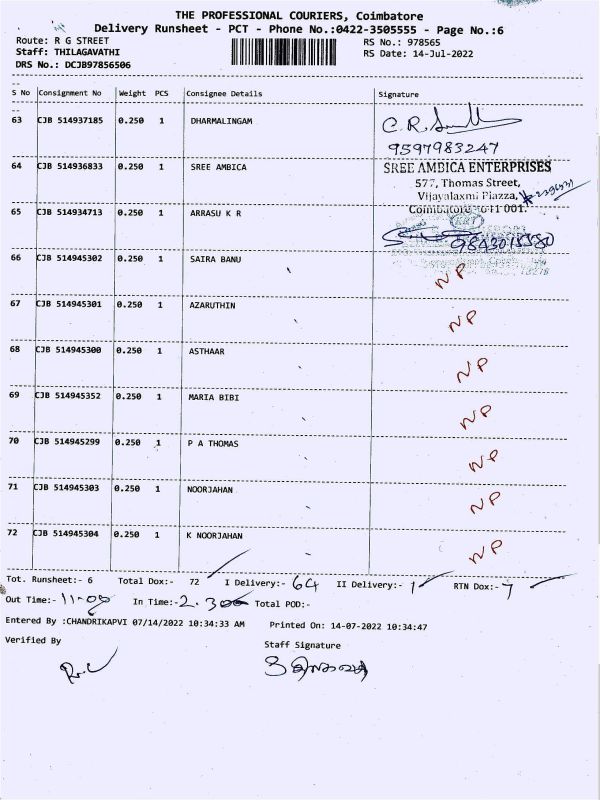 THE PROFESSIONAL COURIERS, Coimbatore
Delivery Runsheet - PCT - Phone No.:0422-3505555 - Page No.:6
Route: R G STREET RS No.: 978565
Staff: THILAGAVATHI RS Date: 14-Jul-2022
DRS No.: DCJB97856506
S No Consignment No Weight PCS Consignee Details Signature
63 CJB 514937185 0.250 1 DHARMALINGAM
9597983247
64 CJB 514936833 0.250 1 SREE AMBICA SREE AMBICA ENTERPRISES
577, Thomas Street,
Vijayalaxmi Plazza,
Coimbatore-641 001.
65 CJB 514934713 0.250 1 ARRASU K R
66 CJB 514945302 0.250 1 SAIRA BANU NP
67 CJB 514945301 0.250 1 AZARUTHIN NP
68 CJB 514945300 0.250 1 ASTHAAR NP
69 CJB 514945352 0.250 1 MARIA BIBI NP
70 CJB 514945299 0.250 1 P A THOMAS NP
71 CJB 514945303 0.250 1 NOORJAHAN NP
72 CJB 514945304 0.250 1 K NOORJAHAN NP
Tot. Runsheet:- 6 Total Dox:- 72 I Delivery:- 64 II Delivery:- 1 RTN Dox:- 7
Out Time:- In Time:- Total POD:-
Entered By :CHANDRIKAPVI 07/14/2022 10:34:33 AM Printed On: 14-07-2022 10:34:47
Verified By Staff Signature